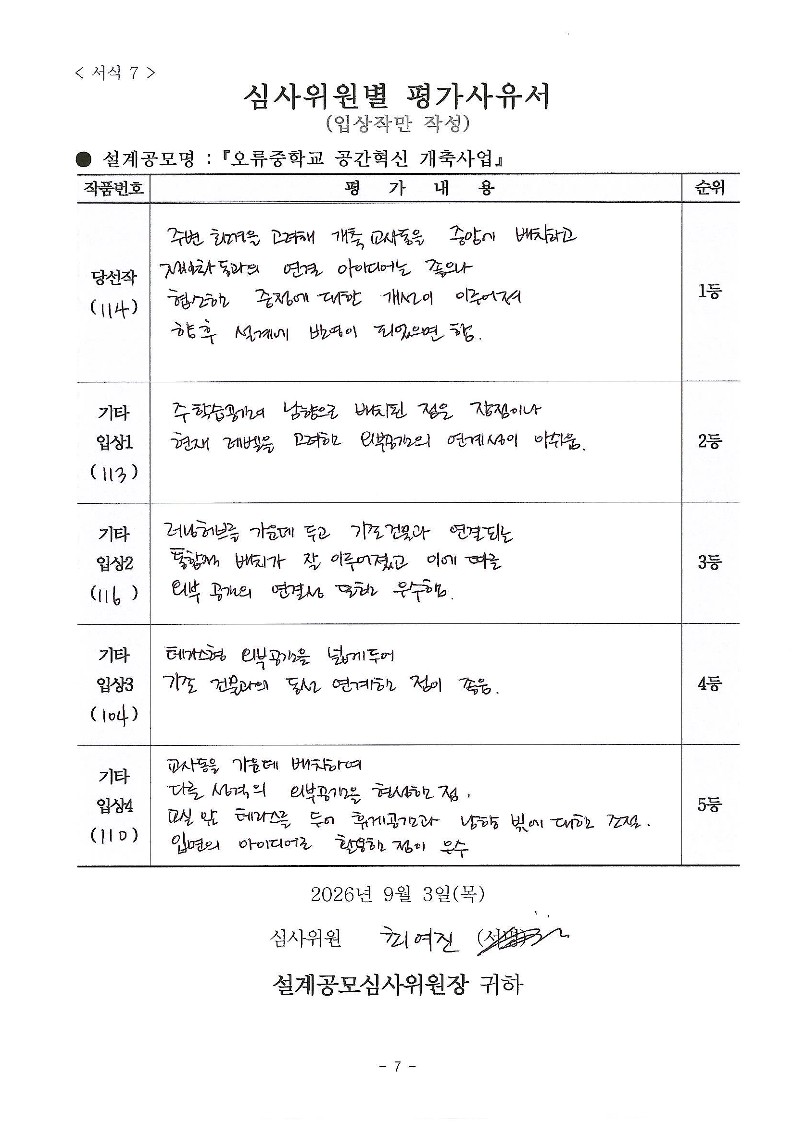 < 서식 7 >
심사위원별 평가사유서
(입상작만 작성)
● 설계공모명 : 『오류중학교 공간혁신 개축사업』
작품번호 평 가 내 용 순위
당선작
(114)
주변 환경을 고려해 개축 교사동을 중앙에 배치하고
연결 아이디어는 좋으나
협소한 중정에 대한 개선이 이루어져
향후 설계에 반영이 되었으면 함.
1등
기타
입상1
(113)
주 학습공간이 남향으로 배치된 점은 장점이나
현재 레벨을 고려한 외부공간의 연계성이 아쉬움.
2등
기타
입상2
(116)
러닝허브를 가운데 두고 기존건물과 연결되는
통합적 배치가 잘 이루어졌고 이에 따른
외부 공간의 연결성 또한 우수함.
3등
기타
입상3
(104)
테라스형 외부공간을 넓게두어
기존 건물과의 동선 연계한 점이 좋음.
4등
기타
입상4
(110)
교사동을 가운데 배치하여
다른 성격의 외부공간을 형성한 점.
교실 앞 테라스를 두어 휴게공간과 남향 빛에 대한 조절.
입면의 아이디어로 활용한 점이 우수
5등
2026년 9월 3일(목)
심사위원 최여진
설계공모심사위원장 귀하
- 7 -